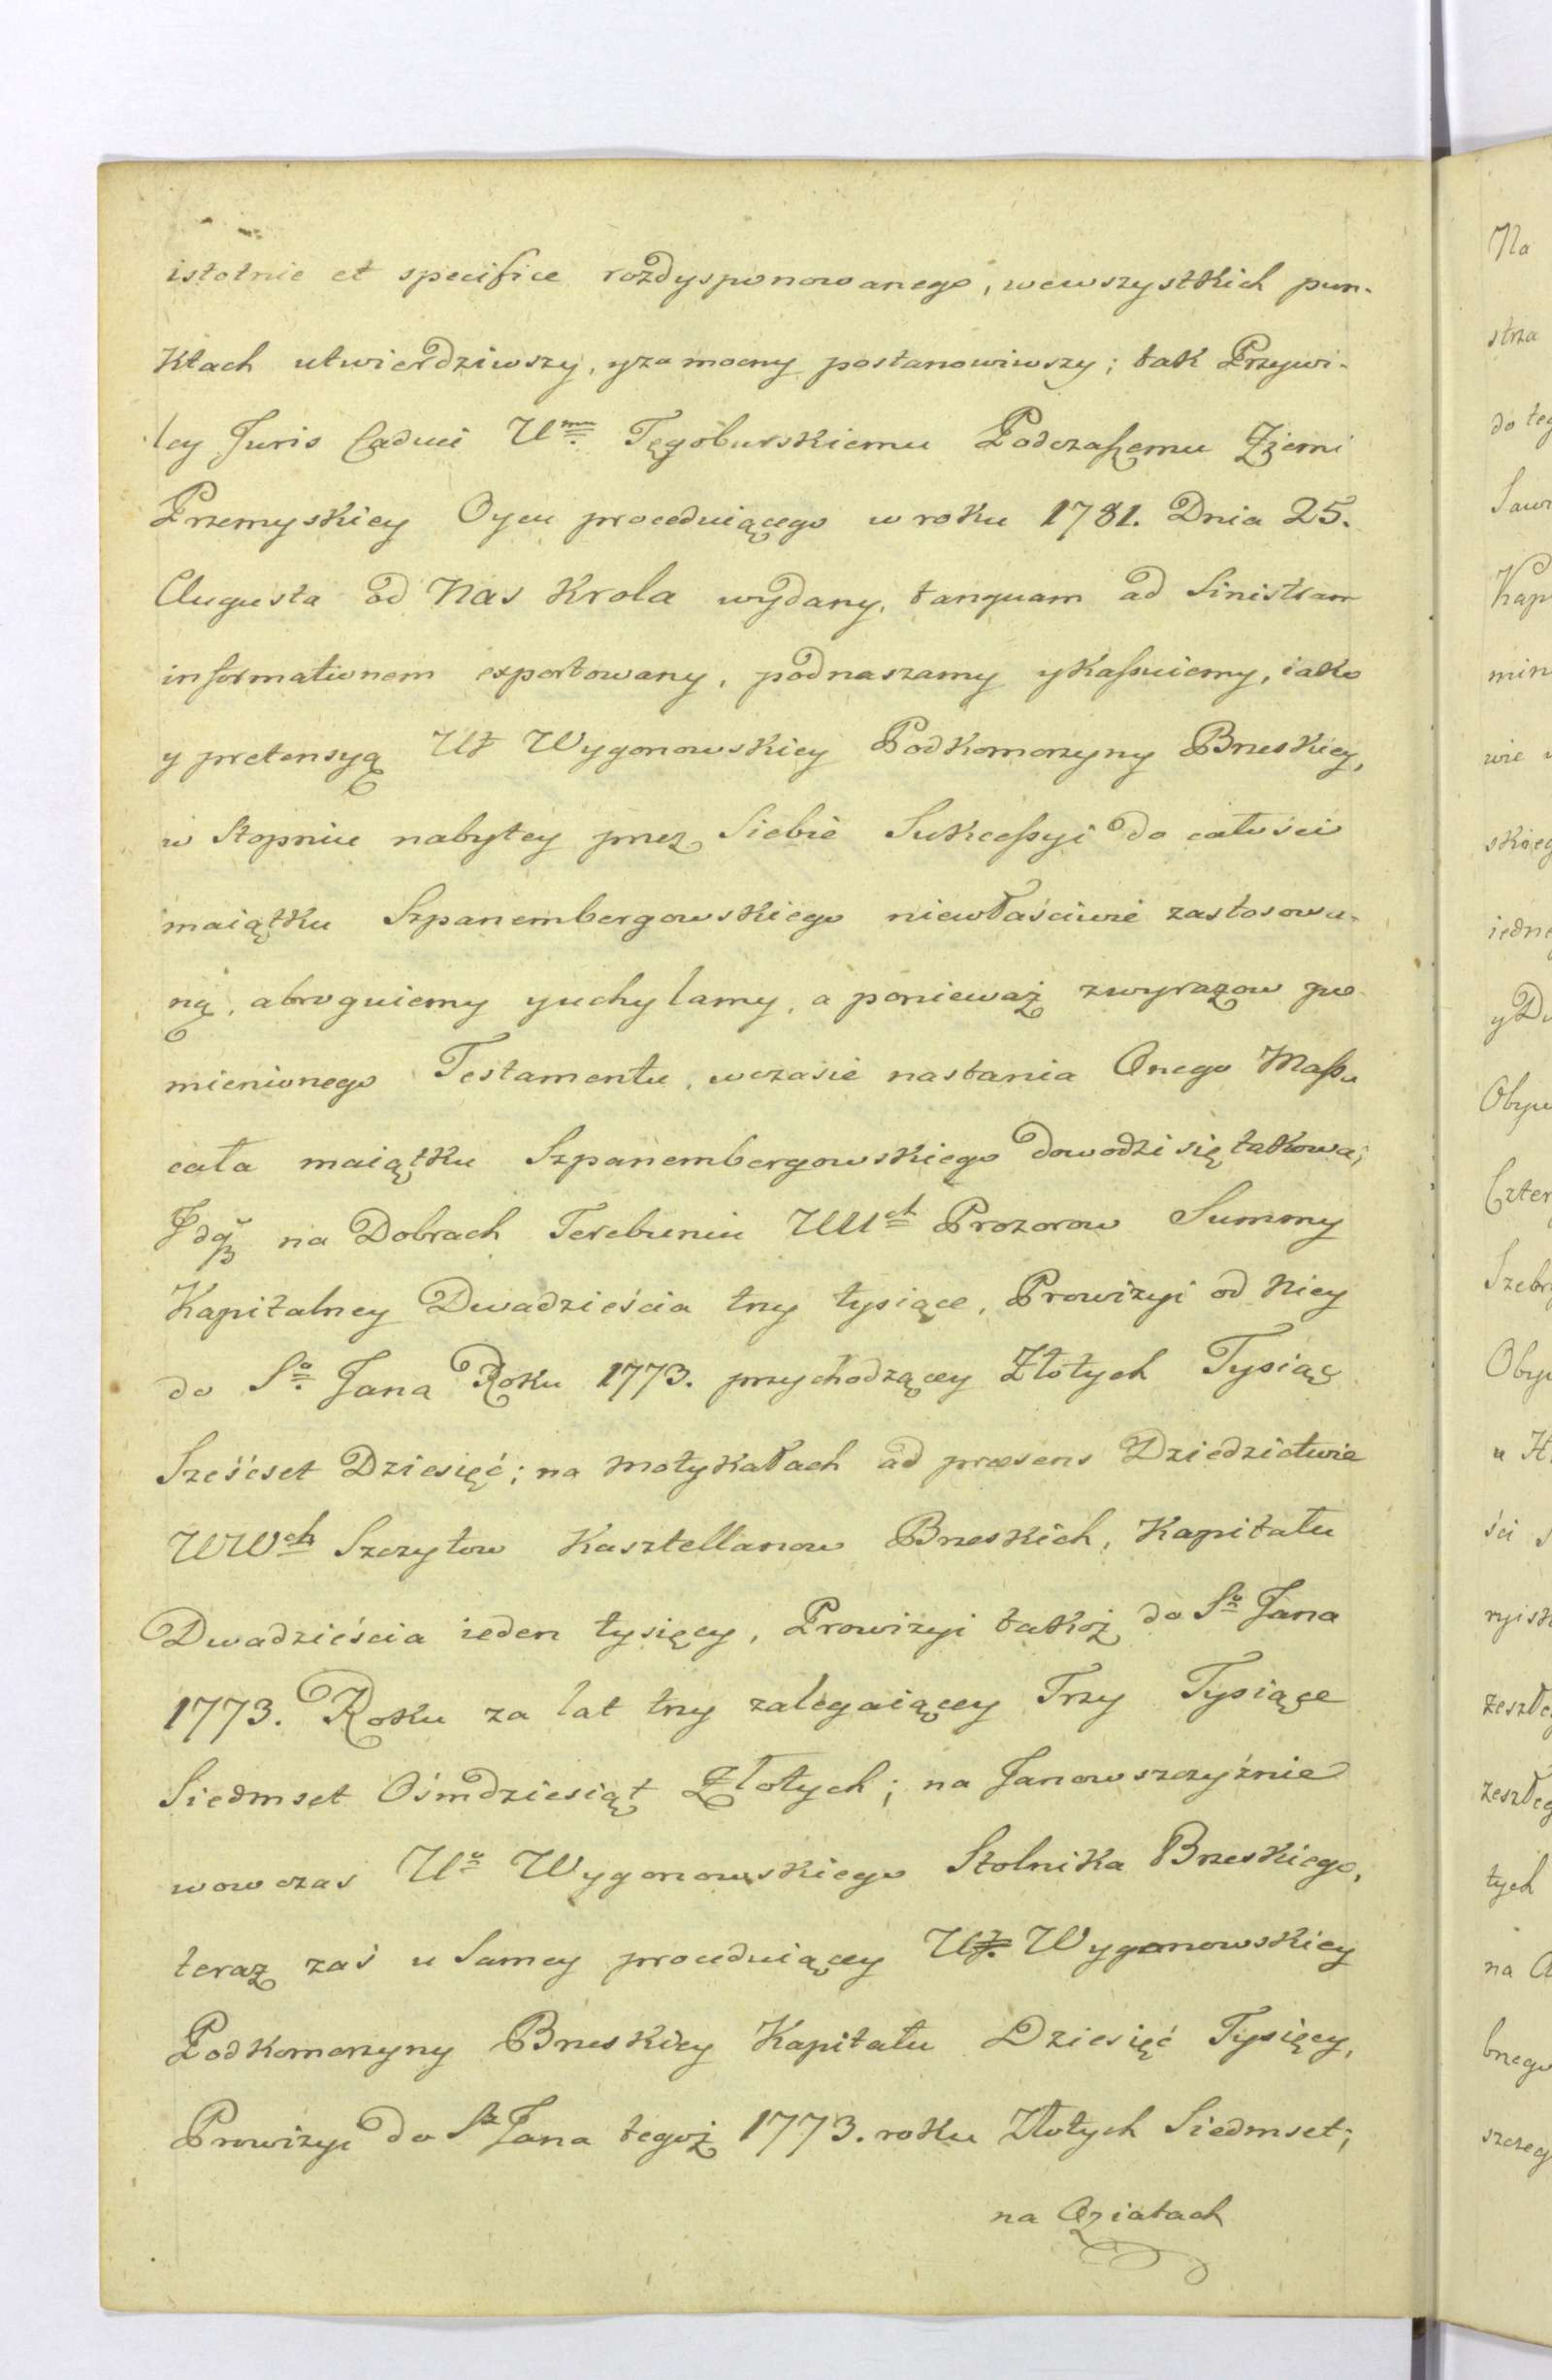 istotnie et specifice rozdysponowanego, wewszystkich pun-
ktach utwierdziwszy, yza mocny postanowiwszy; tak Przywi-
ley Juris Caduci Umu Tęgoburskiemu Podczaszemu Ziemi
Przemyskiey Oycu proceduiącego w roku 1781. Dnia 25.
Augusta od Nas Krola wydany, tanquam ad Sinistram
informationem exportowany, podnaszamy ykassuiemy, iako
y pretensyą UJ Wygonowskiey Podkomorzyny Brzeskiey,
w Stopniu nabytey przez Siebie Sukcessyi do całości
maiątku Szpanembergowskiego niewłaściwie zastosowa-
ną, abroguiemy yuchylamy, a ponieważ zwyrazow po-
mienionego Testamentu, wczasie nastania Onego Massa
cała maiątku Szpanembergowskiego dowodzi się takowa;
Jdqz na Dobrach Terebuniu UUch Prozorow Summy
Kapitalney Dwadzieścia trzy tysiące, Prowizyi od Niey
do So. Jana Roku 1773. przychodzącey Złotych Tysiąc
Sześćset Dziesięć; na Motykałach ad præsens Dziedzictwie
WWch Szczytow Kasztellanow Brzeskich, Kapitału
Dwadzieścia ieden tysięcy, Prowizyi takoż do So Jana
1773. Roku za lat trzy zalegaiącey Trzy Tysiące
Siedmset Ośmdziesiąt Złotych; na Janowszczyźnie
wowczas Uo Wygonowskiego Stolnika Brzeskiego,
teraz zaś u Samey proceduiącey UJ. Wygonowskiey
Podkomorzyny Brzeskiey Kapitału Dziesięć Tysięcy,
Prowizyi do S Jana tegoż 1773. roku Złotych Siedmset;
na Aziatach
Na
stra
do teg
Kap
min
wie
skieg
iedne
Obyw
Czter
Szebr
ści
zeszłe
zeszłeg
tych
na
bnego
szczeg